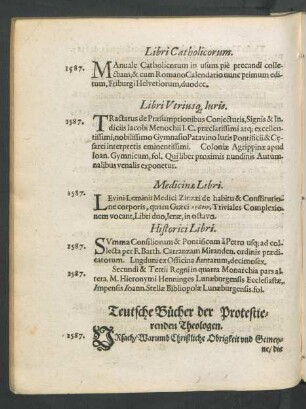 Libri Catholicorum.
1587. MAnuale Catholicorum in usum piè precandi colle-
ctum, & cum Romano Calendario nunc primum edi-
tum, Friburgi Helvetiorum, duodec.
Libri Vtriusq. Iuris.
1587. TRactatus de Præsumptionibus Conjecturis, Signis & In-
diciis Iacobi Menochii I. C. præclarissimi atq; excellen-
tissimi, nobilissimo Gymnasio Patavino Iuris Pontificii & Cę-
sarei interpretis eminentissimi. Coloniæ Agrippinæ apud
Ioan. Gymnicum, fol. Qui liber proximis nundinis Autum-
nalibus venalis exponetur.
Medicinæ Libri.
1587. LEvini Lemnii Medici Zirizæi de habitu & Constitutio-
ne corporis, quam Græci Triviales Complexio-
nem vocant, Libri duo, Ienæ, in octavo.
Historici Libri.
1587. SVmma Consiliorum & Pontificum à Petro usq; ad col-
lecta per F. Barth. Carranzam Miranden. ordinis prædi-
catorum. Lugduni ex Officina decimosex.
1587. Secundi & Tertii Regni in quarta Monarchia pars al-
tera. M. Hieronymi Henninges Luneburgensis Ecclesiastæ,
Impensis Ioann. Stellæ Bibliopolæ Luneburgensis fol.
Teutsche Bücher der Protestie-
renden Theologen.
1587. VRsach/ Warumb Christliche Obrigkeit vnd Gemey-
ne/ die